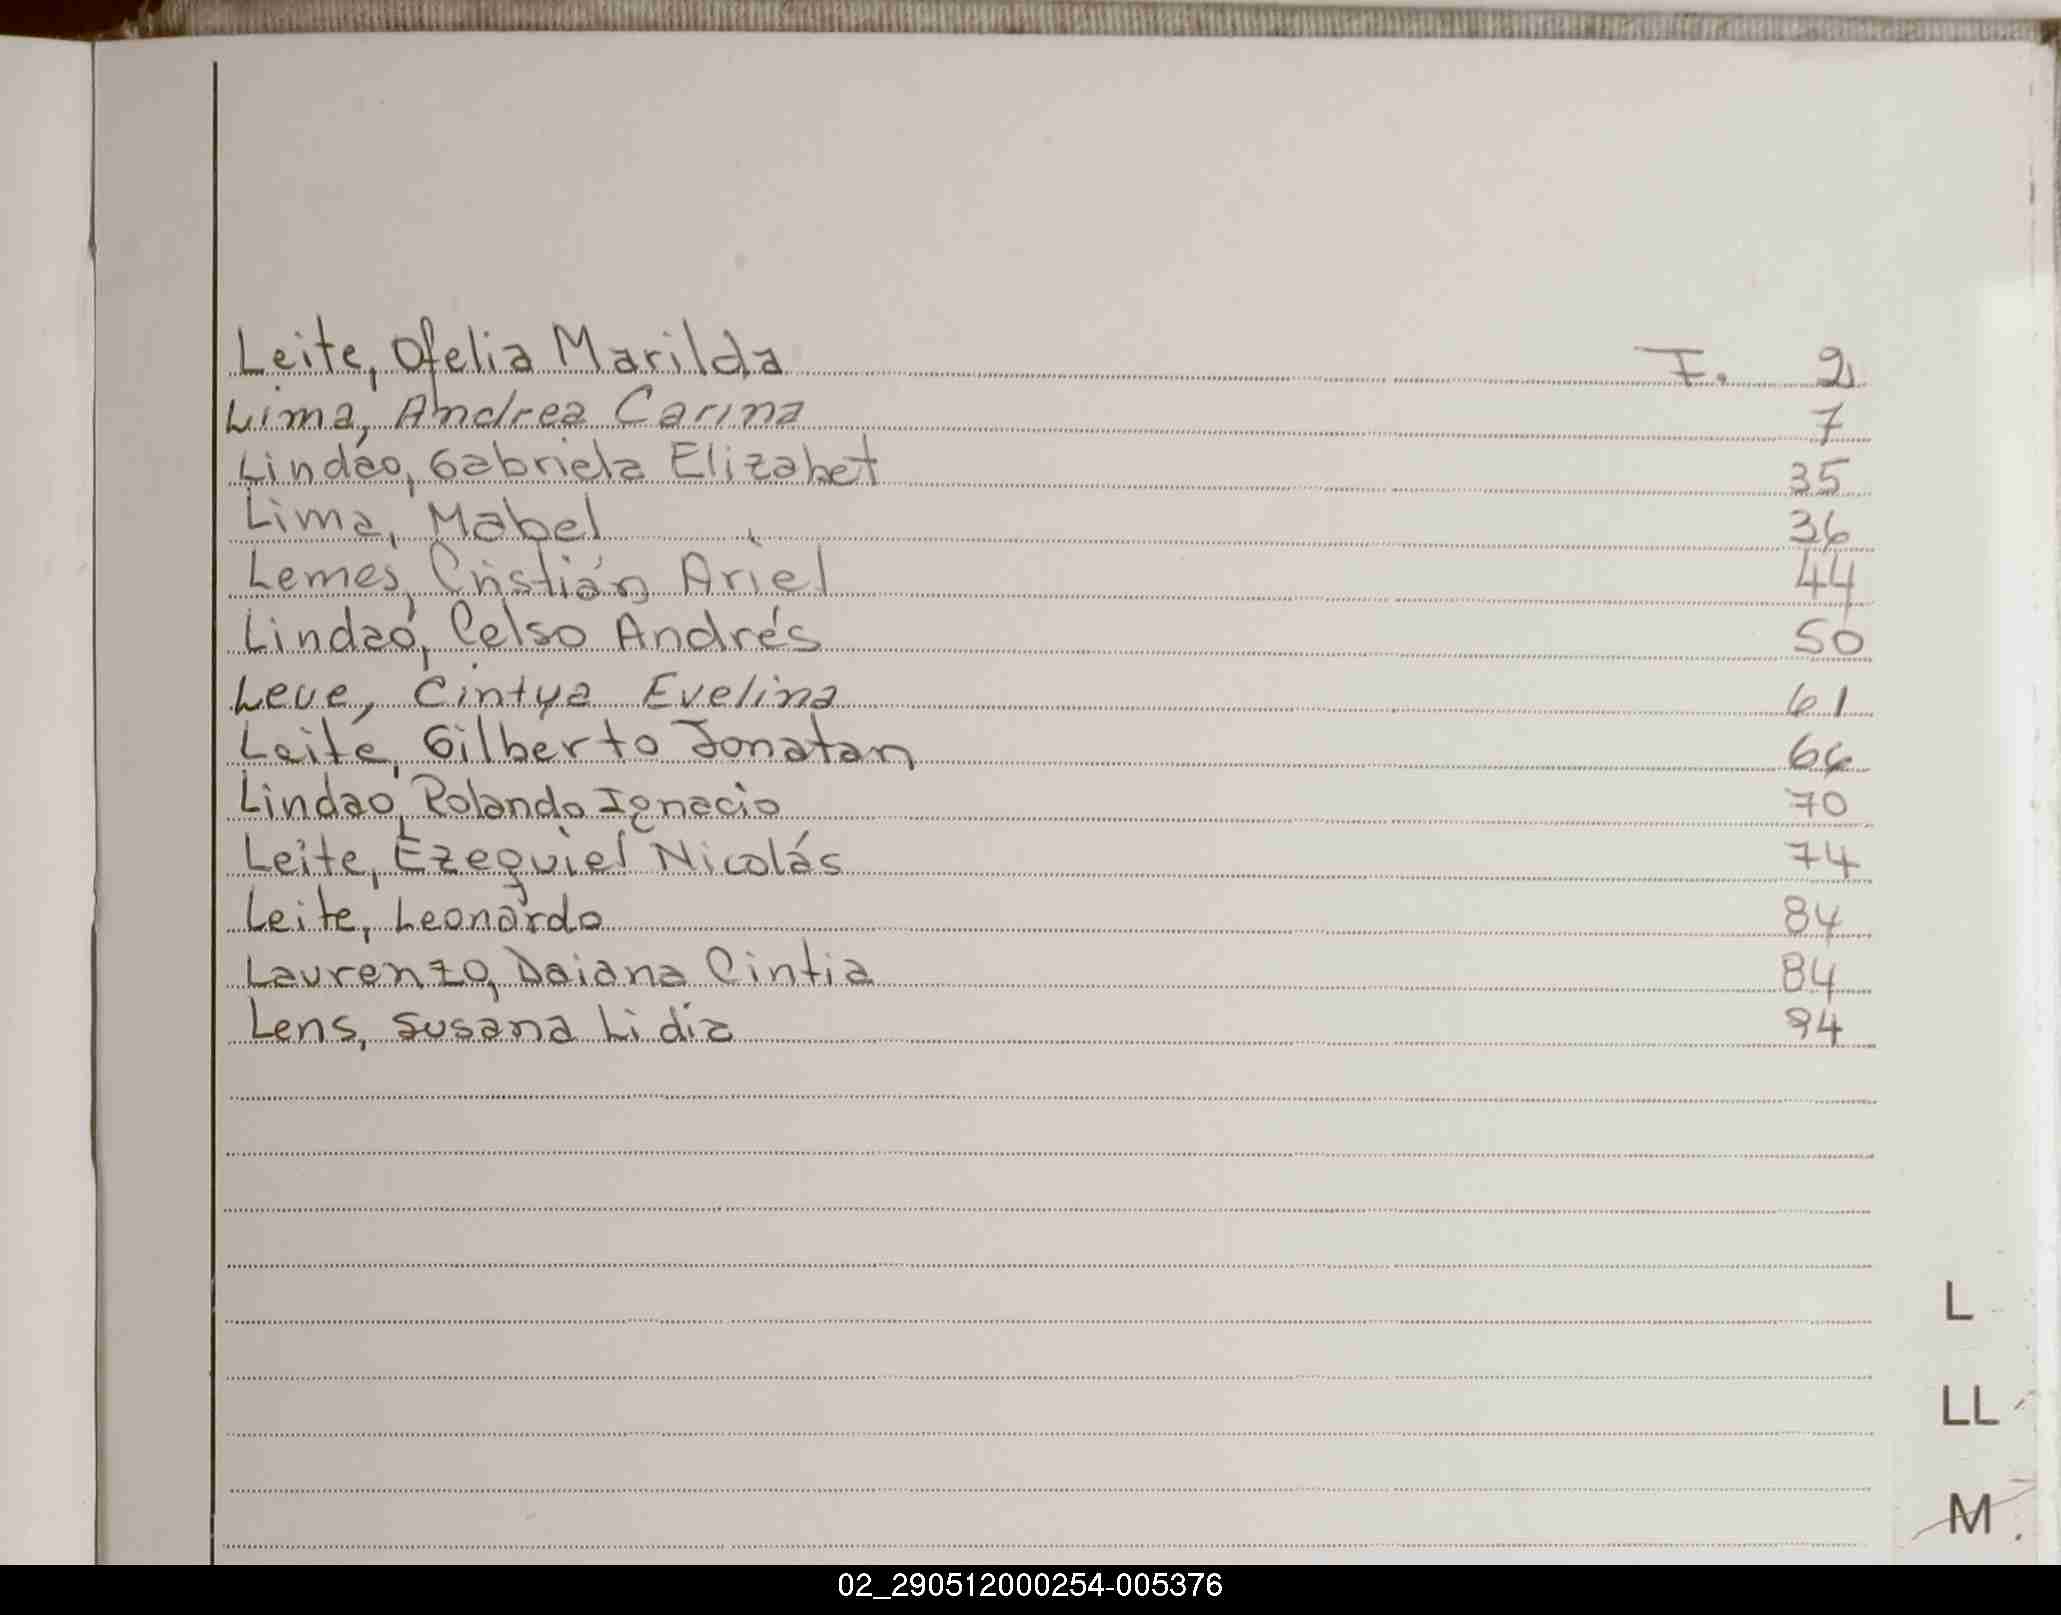 Leite, Ofelia Marilda F. 2
Lima, Andrea Carina 7
Lindao, Gabriela Elizabet 35
Lima, Mabel 36
Lemes, Cristián Ariel 44
Lindao, Celso Andrés 50
Leve, Cintya Evelina 61
Leite, Gilberto Jonatan 66
Lindao, Rolando Ignacio 70
Leite, Ezequiel Nicolás 74
Leite, Leonardo 84
Laurenzo, Daiana Cintia 84
Lens, Susana Lidia 94
L
LL
M
02_290512000254-005376